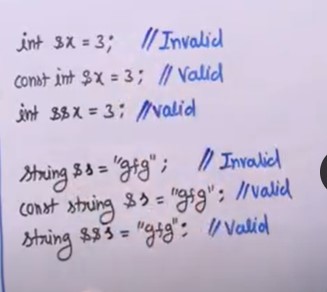 int &x = 3; // Invalid
const int &x = 3; // Valid
int &&x = 3; // Valid
String &s = "gfg"; // Invalid
const string &s = "gfg"; // Valid
String &&s = "gfg"; // Valid